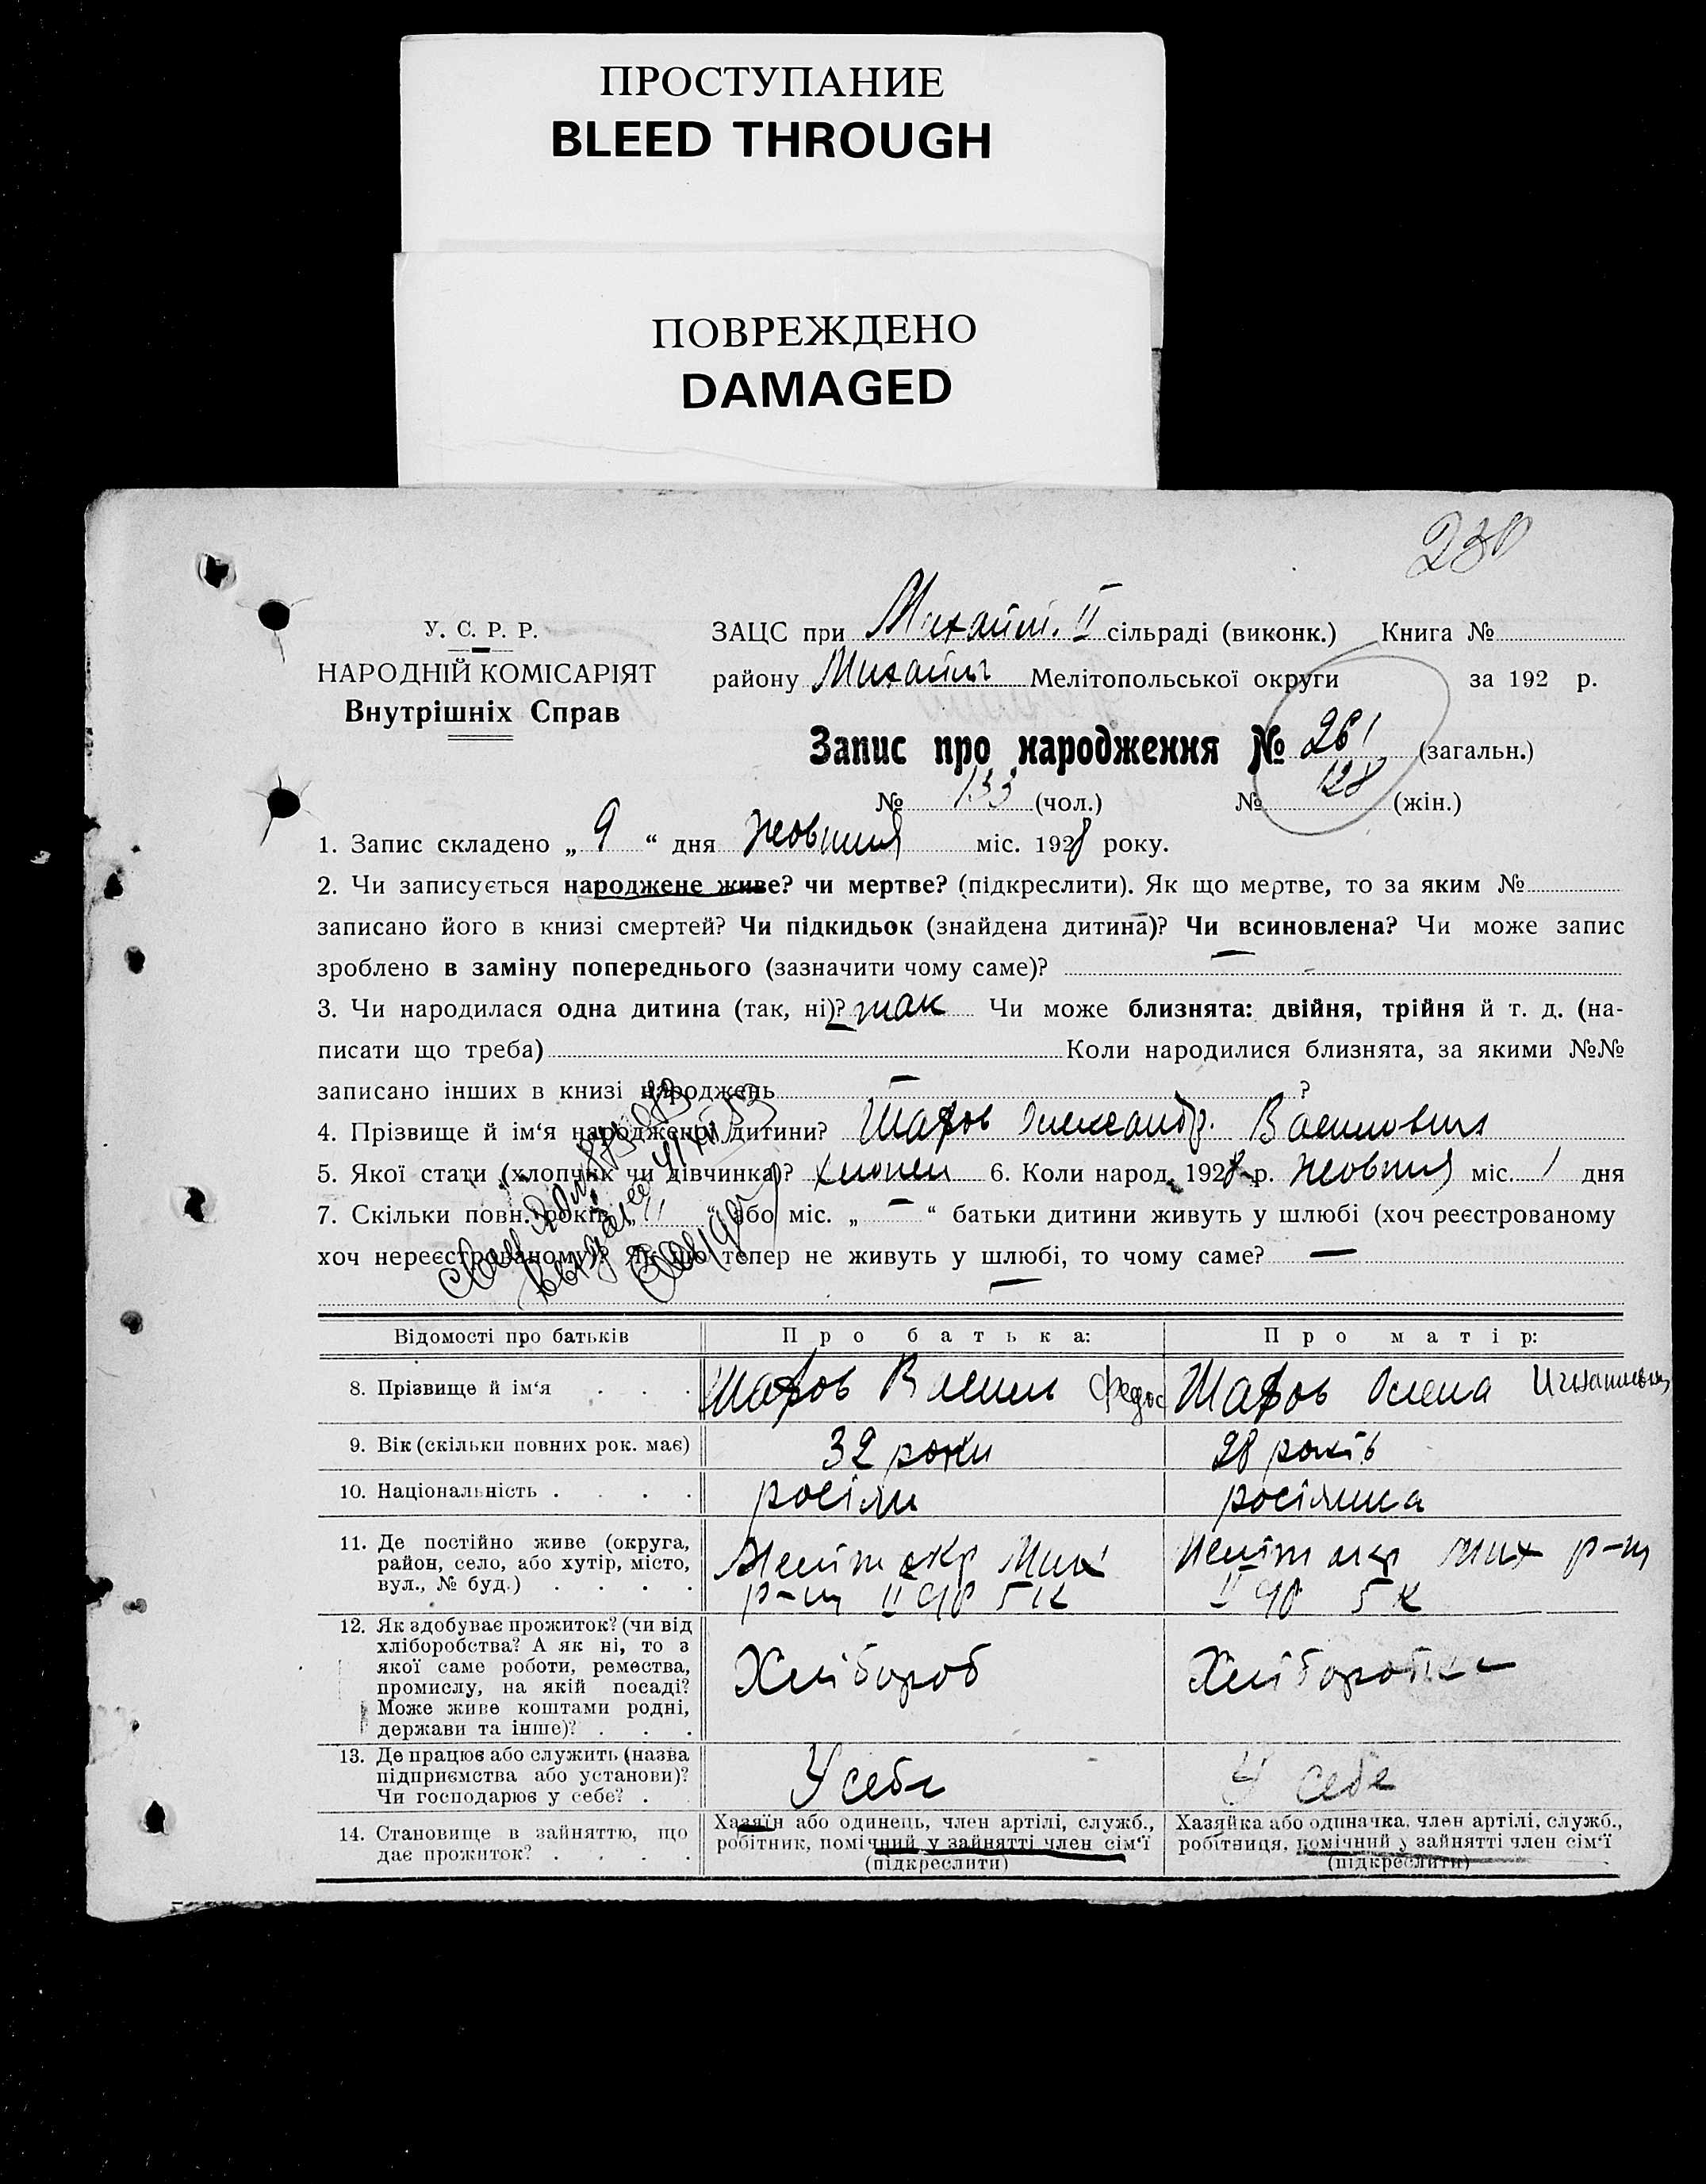 ПРОСТУПАНИЕ
BLEED THROUGH
ПОВРЕЖДЕНО
DAMAGED
230
У. С. Р. Р.
НАРОДНІЙ КОМІСАРІЯТ
Внутрішніх Справ
ЗАЦС при Михайл. II сільраді (виконк.) Книга №
району Михайл Мелітопольської округи за 192 р.
Запис про народження № 261 (загальн.)
№ 133 (чол.) № 128 (жін.)
1. Запис складено „ 9 “ дня Жовтня міс. 1928 року.
2. Чи записується народжене живе? чи мертве? (підкреслити). Як що мертве, то за яким №
записано його в книзі смертей? Чи підкидьок (знайдена дитина)? Чи всиновлена? Чи може запис
зроблено в заміну попереднього (зазначити чому саме)?
3. Чи народилася одна дитина (так, ні)? так Чи може близнята: двійня, трійня й т. д. (на-
писати що треба) Коли народилися близнята, за якими №№
записано інших в книзі народжень — ?
4. Прізвище й ім‘я народженої дитини? Олександр. Васильович
5. Якої стати (хлопчик чи дівчинка)? хлопец 6. Коли народ. 1928 р. Жовтня міс. 1 дня
7. Скільки повн. років „ 11 “ або міс. „ — “ батьки дитини живуть у шлюбі (хоч реєстрованому
хоч нереєстрованому)? Як що тепер не живуть у шлюбі, то чому саме? —
Відомості про батьків Про батька: Про матір:
8. Прізвище й ім‘я . . . Василь Федос Олена
9. Вік (скільки повних рок. має) 32 роки 28 років
10. Національність . . . . росіян росіянка
11. Де постійно живе (округа,
район, село, або хутір, місто,
вул., № буд.) . . . .
Меліт окр Мих
р-н II 98 5 К
Меліт окр Мих р-н
II 98 5 К
12. Як здобуває прожиток? (чи від
хліборобства? А як ні, то з
якої саме роботи, ремества,
промислу, на якій посаді?
Може живе коштами родні,
держави та інше)? . . .
Хлібороб
Хліборобка
13. Де працює або служить (назва
підприємства або установи)?
Чи господарює у себе? .
У себе
У себе
14. Становище в зайняттю, що
дає прожиток? . . . .
Хазяїн або одинець, член артілі, служб.,
робітник, помічний у зайнятті член сім‘ї
(підкреслити)
Хазяйка або одиначка, член артілі, служб.,
робітниця, помічний у зайнятті член сім‘ї
(підкреслити)